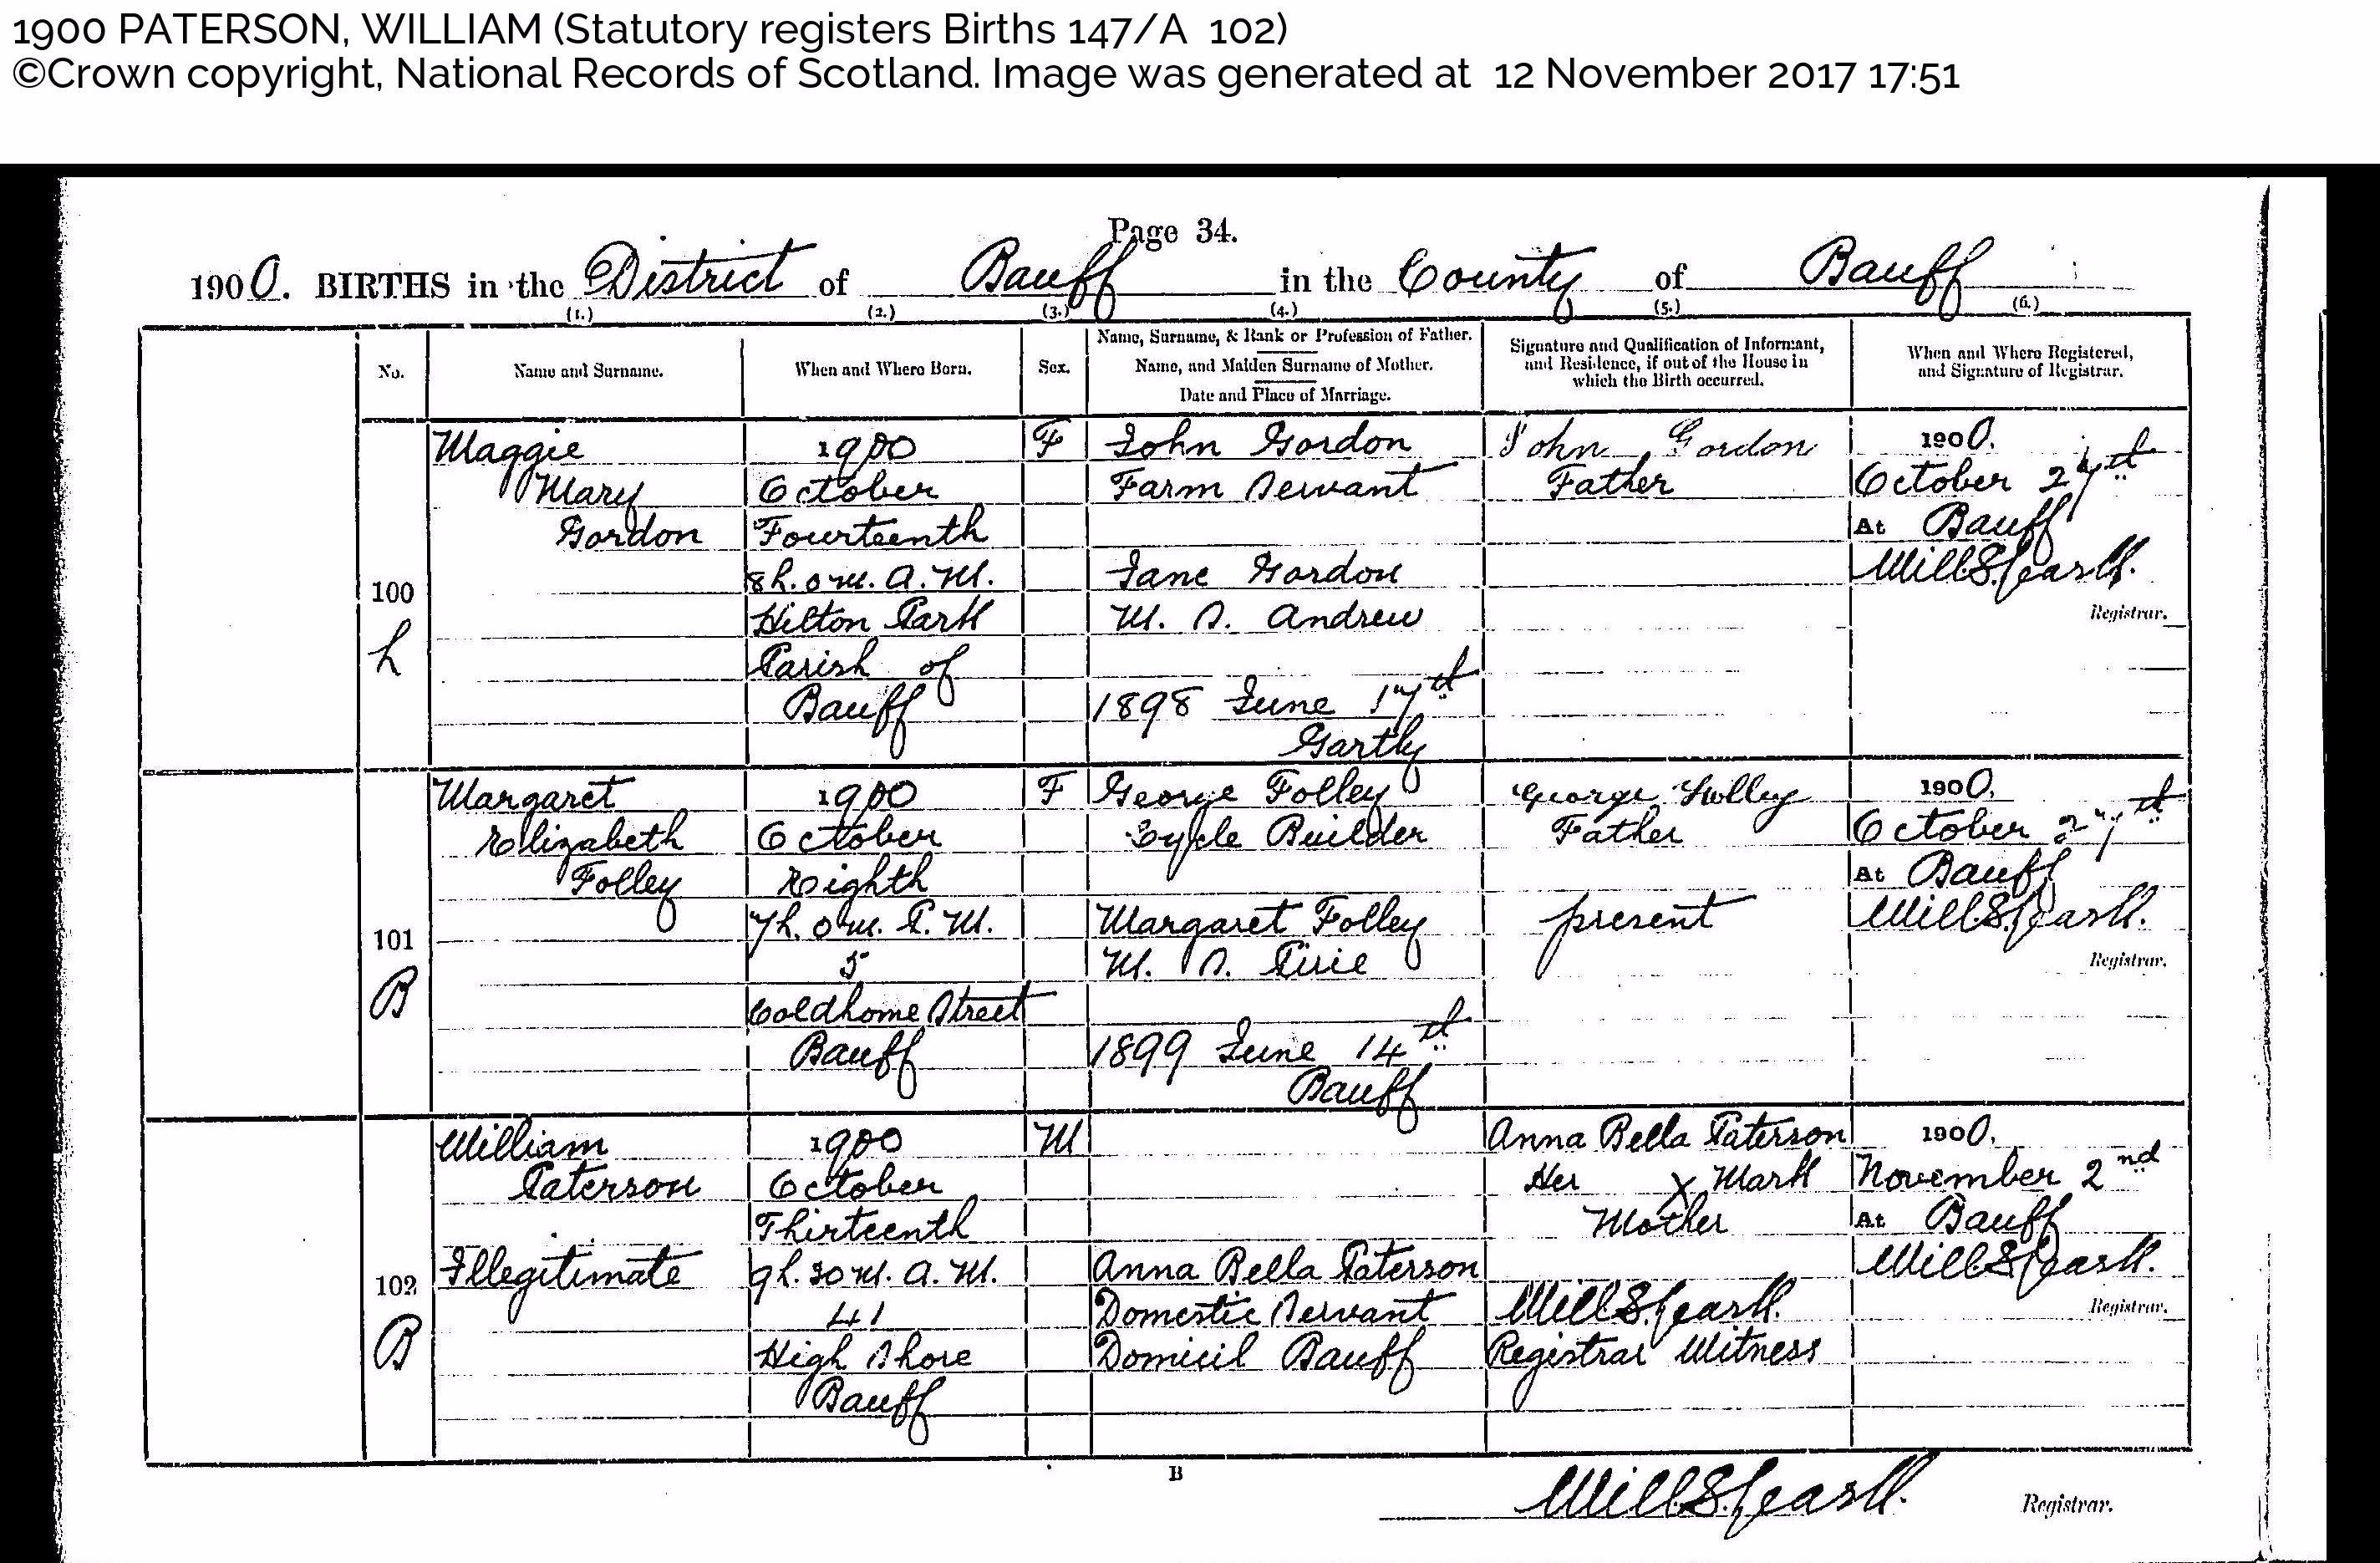 1900 PATERSON, WILLIAM (Statutory registers Births 147/A 102)
©Crown copyright, National Records of Scotland. Image was generated at 12 November 2017 17:51
Page 34.
1900. BIRTHS in the District of Banff in the County of Banff
(1.) (2.) (3.) (4.) (5.) (6.)
No.
Name and Surname.
When and Where Born.
Sex.
Name, Surname, & Rank or Profession of Father.
Name, and Maiden Surname of Mother.
Date and Place of Marriage.
Signature and Qualification of Informant,
and Residence, if out of the House in
which the Birth occurred.
When and Where Registered,
and Signature of Registrar.
100
h
Maggie
Mary
Gordon
1900
October
Fourteenth
8h. 0m. A.M.
Hilton Park
Parish of
Banff
F
John Gordon
Farm Servant
Jane Gordon
M. S. Andrew
1898 June 17th
Gartly
John Gordon
Father
1900.
October 27th
At Banff
Will
Registrar.
101
B
Margaret
Elizabeth
Folley
1900
October
Eighth
7h. 0m. P.M.
5
Coldhome Street
Banff
F
George Folley
Cycle Builder
Margaret Folley
M. S. Pirie
1899 June 14th
Banff
George Folley
Father
present
1900.
October 27th
At Banff
Will
Registrar.
102
B
William
Paterson
Illegitimate
1900
October
Thirteenth
9h. 30m. A.M.
41
High Shore
Banff
M
Anna Bella Paterson
Domestic Servant
Domicil Banff
Anna Bella Paterson
Her X Mark
Mother
Will
Registrar Witness
1900.
November 2nd
At Banff
Will
Registrar.
B
Will
Registrar.